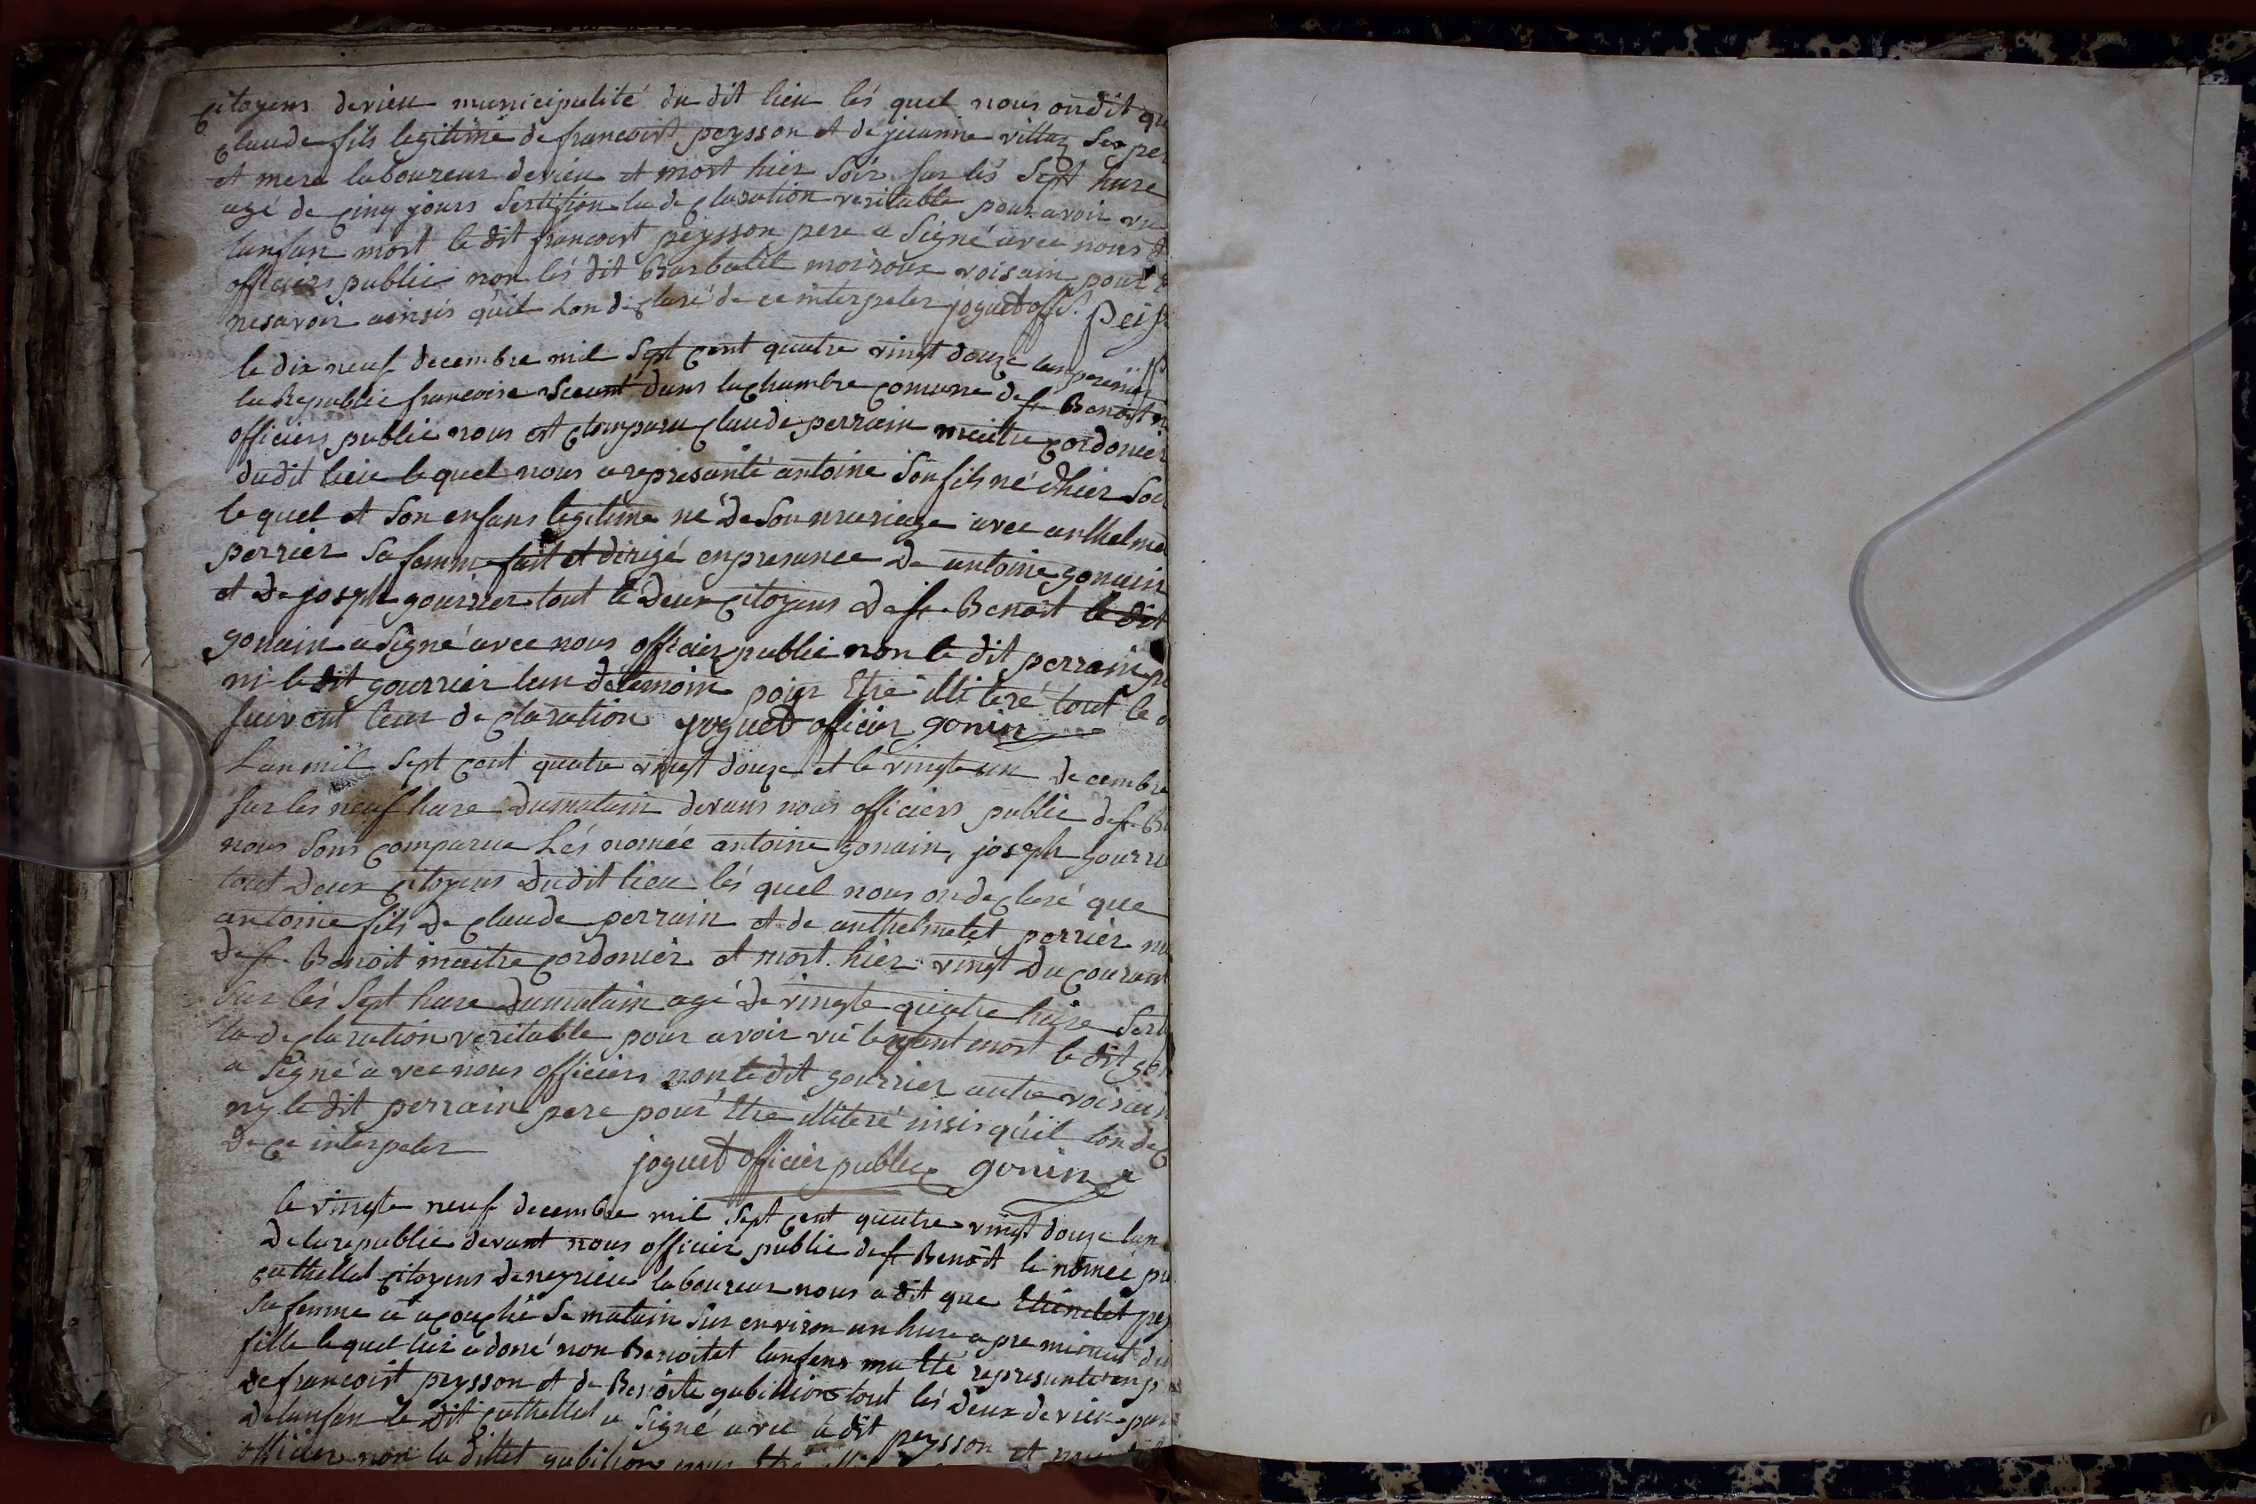 citoyens derieu municipalité du dit lieu lés quel nous ondit que
claude fils legitime de francoist peysson et de jeanne villaz Ses per
et mere laboureur derieu et mort hier Soir Sur lés Sept hure
agé de cinq jours Sertifion la declaration veritable pour avoir vu
lanfan mort le dit francoist peysson pere a Signé avec nous
officiers public non lés dit Barbatet moiroux voisain pour
nesavoir ainsis quil Londeclaré de ce interpeler joguet off P. Peis
le dix neuf decembre mil Sept cent quatre vingt douze lan premier
la Republic francoise Sceant dans la chambre comune de st Benoit
officiers public nous est comparu claude perrain maitre cordonier
dudit lieu lequel nous a represanté antoine Son fils né dhier Soir
le quel et Son enfans legitime né de Son mariage avec anthelme
perrier Sa femme fait et dirigé en presance de antoine gonain
et de joseph gourrier tout lé deux citoyens de st Benoit le dit
gonain a Signé avec nous officier public non le dit perrain
ni le dit gourrier lun dé temoin pour Etre illiteré tout le
Suivent leur declaration joguet officier gonin
Lan mil Sept cent quatre vingt douze et le vingte un decembre
Sur les neuf hure dumatain devans nous officiers public de st
nous Sons comparue Lés nomée antoine gonain, joseph gourrie
tout deux citoyens dudit lieu lés quel nous on declaré que
antoine fils de claude perrain et de anthelmetet perrier
de st Benoit maitre cordonier et mort hier vingt du courant
Sur lés Sept hure dumatain agé de vingte quatre hure Ser
la declaration veritable pour avoir vu lenfant mort le dit go
a Signé avec nous officiers non le dit gourrier autre voisain
ny le dit perrain pere pour Etre illiteré insis quil londec
de ce interpeler
joguet officier public gonin
le vingte neuf decembre mil Sept cent quatre vingt douze lan
de la republic devant nous officier public de st Benoit le nomée
cuthellet citoyens de neyrieu laboureur nous a dit que Etienetet pey
Sa femme a acouché Se matain Sur environ un hure a pre minuit du
fille le quel lui a doné non Benoitet lanfans ma Eté represanté enp
de francoist peysson et de Benoite gubillion tout lés deux derieu
de lanfan le dit cuthellet a Signé avec le dit peysson et
officier non la dittet gubillion pour